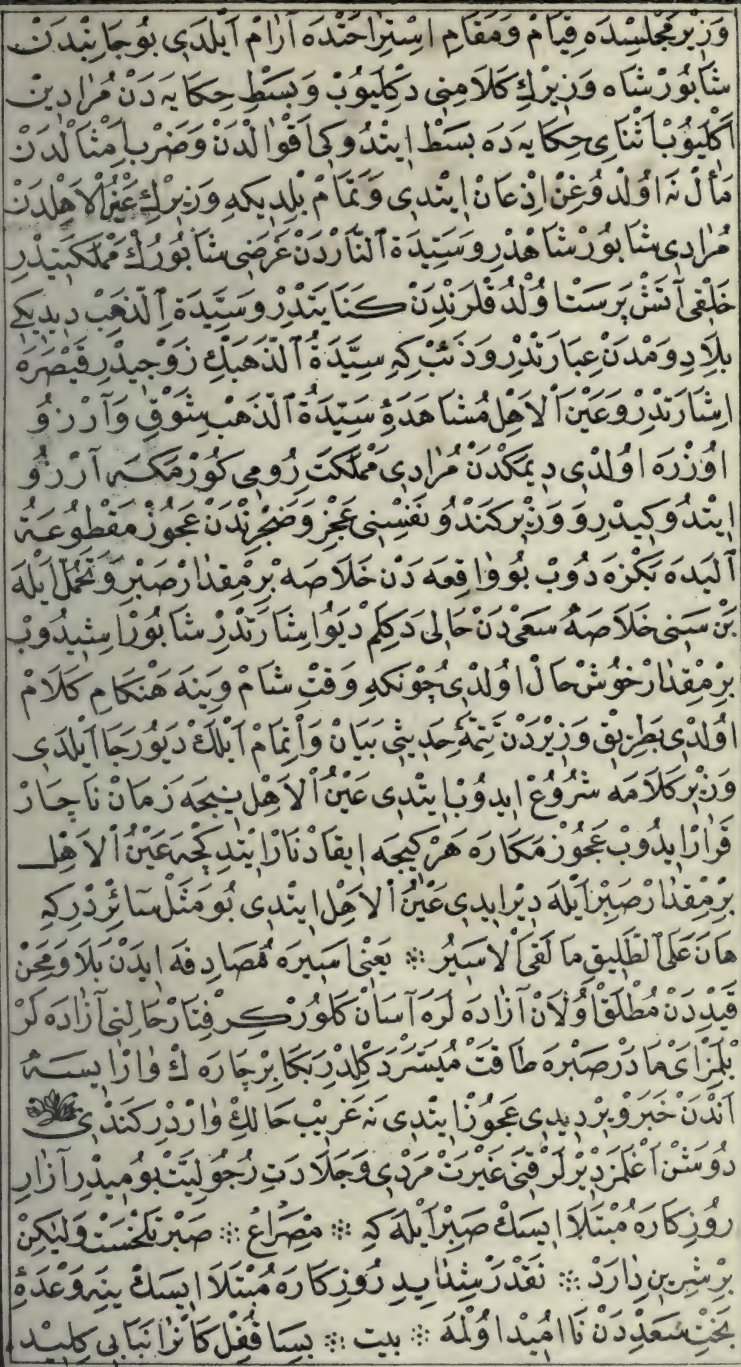 وزير مجلسده قيام ومقام استراحتنده آرام ايلدى بو جانبدن
شابور شاه وزيرك كلامنى دكليوب وبسط حكايه دن مرادين
اكليوب اثناى حكايه ده بسط ايتدوكى اقوالدن وضرب امثالدن
مأل نه اولدوغن اذعان ايتدى وتمام بلديكه وزيرك عين الاهلدن
مرادى شابور شاهدر وسيدة النار دن غرضى شابورك مملكتيدر
خلقى آتش پرست اولدقلرندن كنايتدر وسيدة الذهب ديديكى
بلاد رومدن عبارتدر وذئب كه سيدة الذهبك زوجيدر قيصره
اشارتدر وعين الاهل مشاهدۀ سيدة الذهب شوق وآرزو
اوزره اولدى ديمكدن مرادى مملكت رومى كورمكه آرزو
ايتدوكيدر ووزير كندو نفسنى عجز وضجرندن عجوز مقطوعة
اليده بكزه دوب بو واقعه دن خلاصه بر مقدار صبر وتحمل ايله
بن سنى خلاصه سعيدن خالى دكلم ديو اشارتدر شابور اشيدوب
بر مقدار خوش حال اولدى چونكه وقت شام وينه هنكام كلام
اولدى بطريق وزيردن تتمۀ حديثى بيان واتمام ايلك ديو رجا ايلدى
وزير كلامه شروع ايدوب ايتدى عين الاهل نيجه زمان ناچار
قرار ايدوب عجوز مكاره هر كيجه ايقاد نار ايتدكجه عين الاهل
بر مقدار صبر ايله دير ايدى عين الاهل ايتدى بو مثل سائردركه
هان على الطليق ما لقى الاسير ❊ يعنى اسيره مصادفه ايدن بلا ومحن
قيددن مطلق اولان آزاده لره آسان كلور كرفتار حالنى آزاده لر
بلمز اى مادر صبره طاقت ميسر دكلدر بكا بر چاره ك وار ايسه
اندن خبر وير ديدى عجوز ايتدى نه غريب حالك واردر كندى
دوشن اغلمز ديرلر قنى غيرت مردى وجلادت رجوليت بوميدر آزار
روزكاره مبتلا ايسك صبر ايله كه ❊ مصراع ❊ صبر تلخست وليكن
بر شيرين دارد ❊ نقدر شدايد روزكاره مبتلا ايسك ينه وعدۀ
بخت سعددن نااميد اولمه ❊ بيت ❊ بسا قفل كانرا نيابى كليد